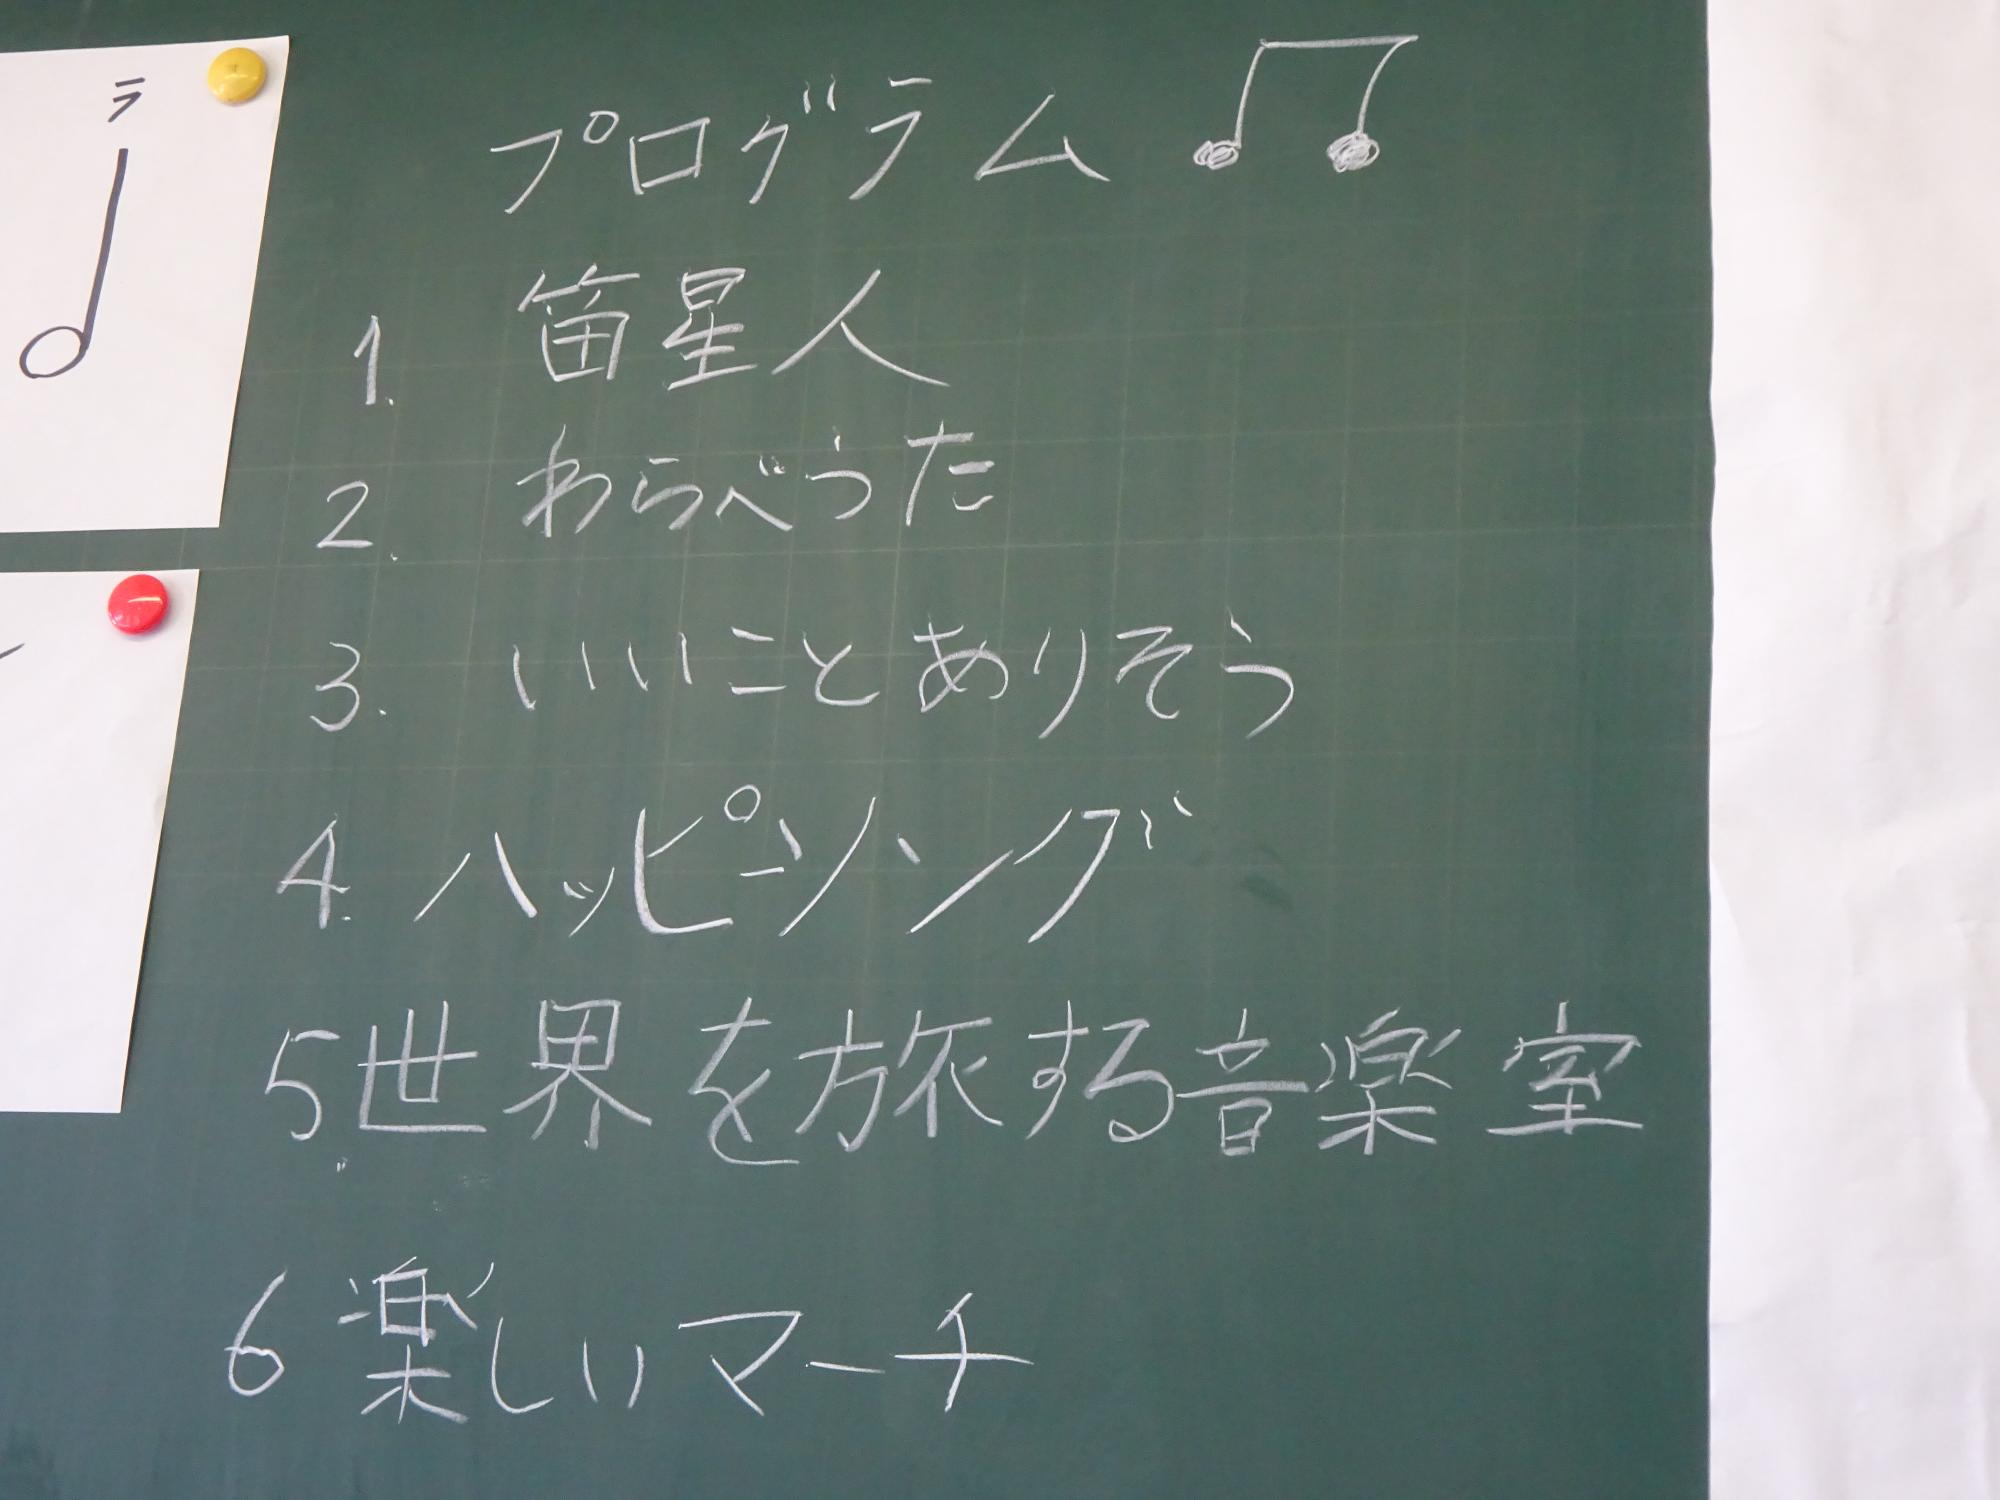 ラ
プログラム
1. 笛星人
2. わらべうた
3. いいことありそう
4. ハッピーソング
5. 世界を旅する音楽室
6 楽しいマーチ